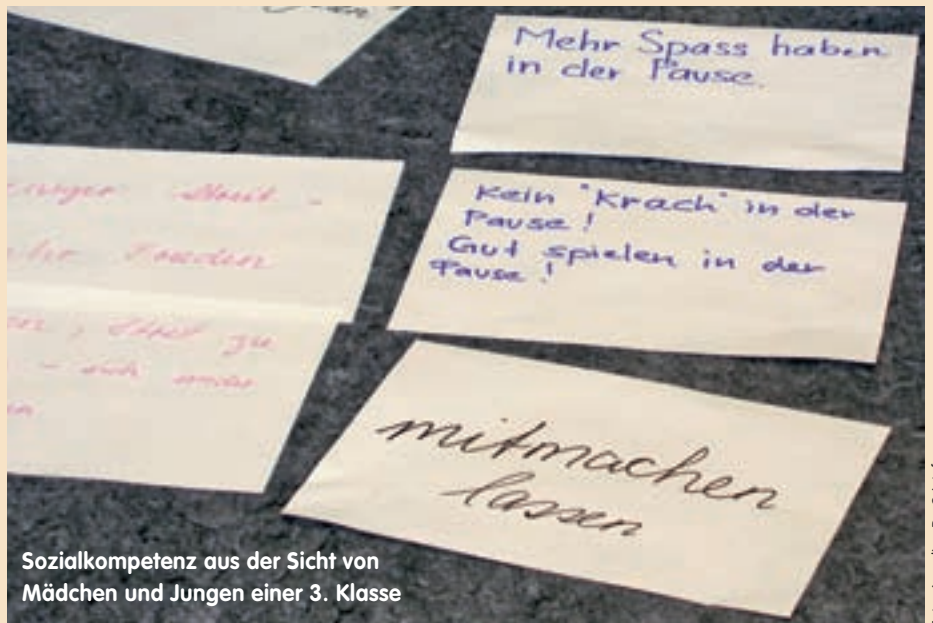 Mehr Spass haben
in der Pause.
Kein "Krach" in der
Pause!
Gut spielen in der
Pause!
Streit -
Frieden
, Streit zu
- sich wieder
mitmachen
lassen
Sozialkompetenz aus der Sicht von
Mädchen und Jungen einer 3. Klasse